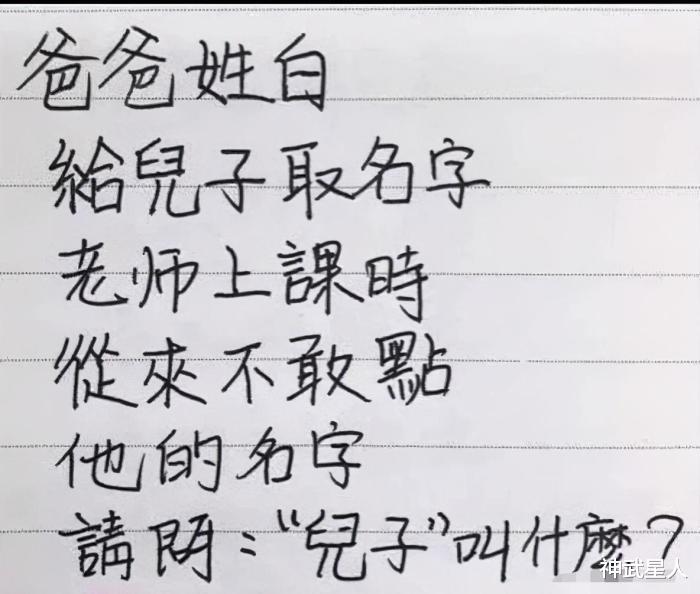 爸爸姓白
給兒子取名字
老师上課時
從來不敢點
他的名字
請問：“兒子”叫什麼？
神武星人